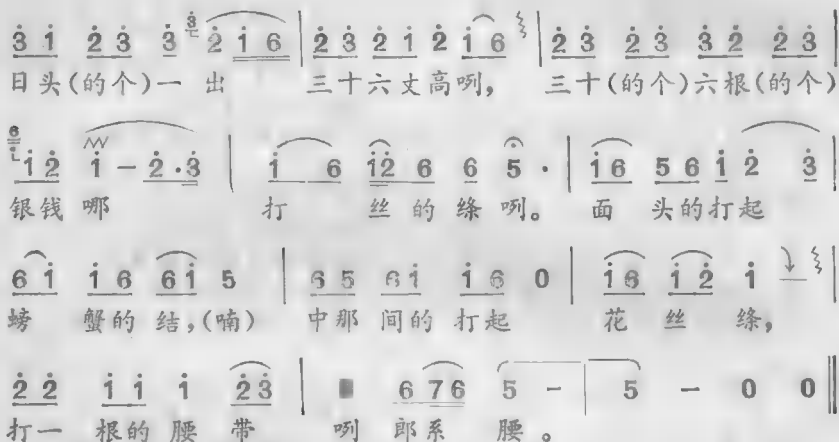 3 1 2 3 3 3 2 1 6 | 2 3 2 1 2 1 6 | 2 3 2 3 3 2 2 3 |
日头(的个)一 出 三十六丈高咧, 三十(的个)六根(的个)
6 1 2 1 - 2 · 3 | 1 6 1 2 6 6 5 · | 1 6 5 6 1 2 3 |
银钱 哪 打 丝的绦咧。 面 头的打起
6 1 1 6 6 1 5 | 6 5 6 1 1 6 0 | 1 6 1 2 1
螃 蟹的 结,(喃) 中那 间的 打起 花 丝 绦,
2 2 1 1 1 2 3 | 6 7 6 5 - | 5 - 0 0
打一 根的 腰 带 咧 郎系 腰。